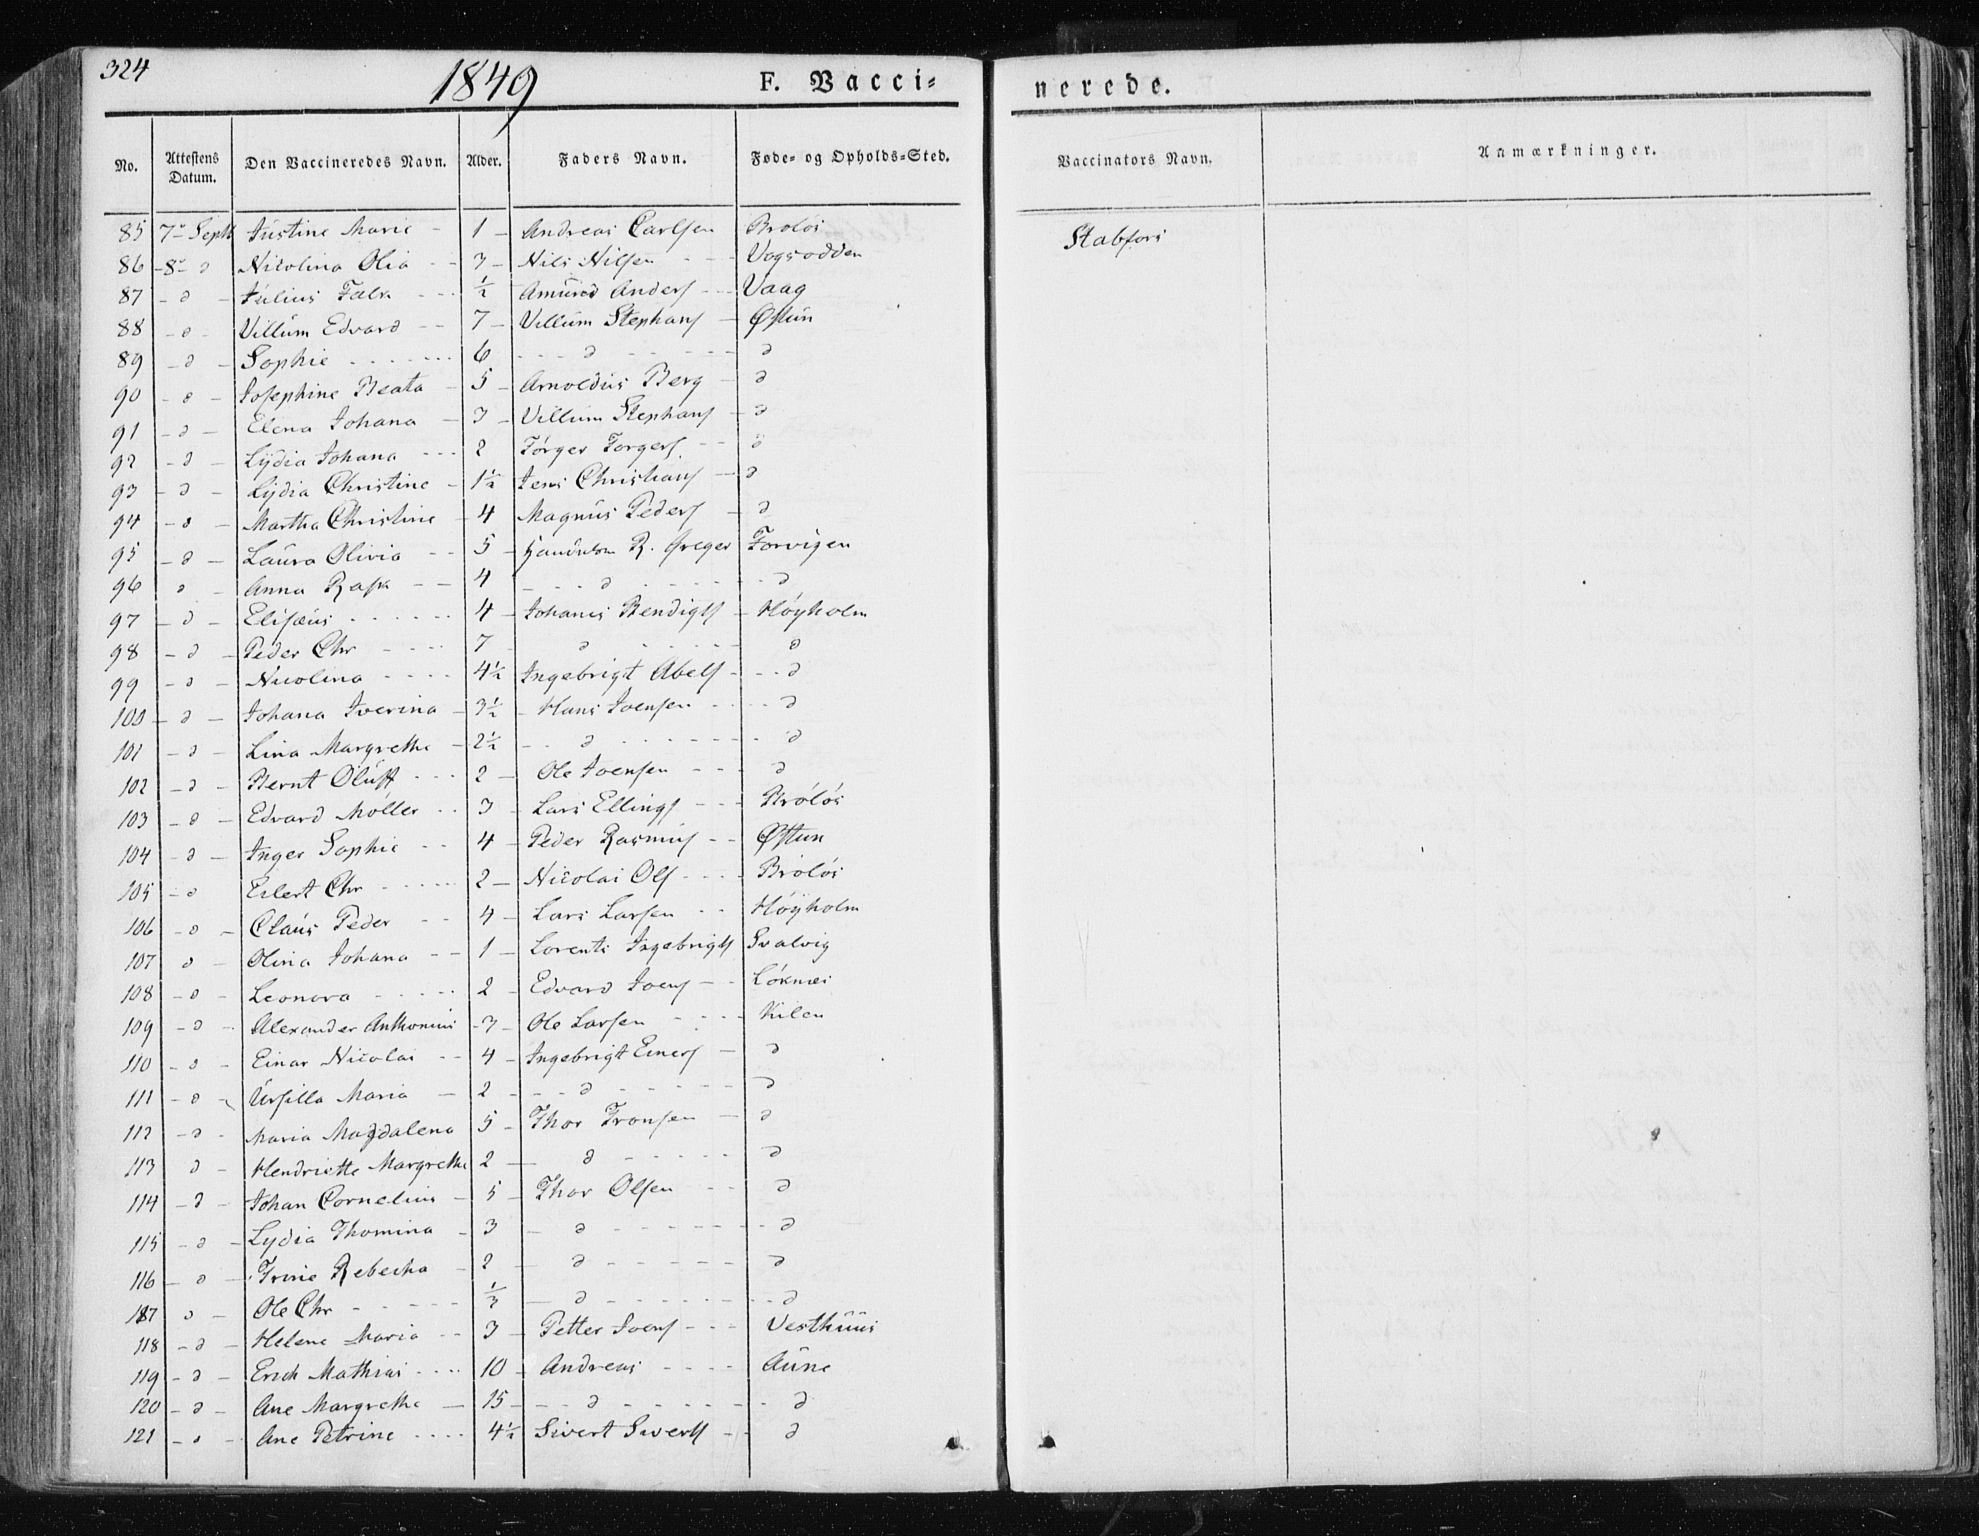 324
1849
F. Vacci-
nerede.
No. Attestens Datum. Den Vaccineredes Navn. Alder. Faders Navn. Føde- og Opholds-Sted. Vaccinators Navn. Anmærkninger.
85 7- Septb Justine Marie - 1 - Andreas Carlsen Broløs Stabfors
86 -8- d Nicolina Olia - - 3 - Nils Nilsen - - - Vogsodden
87 - d - Julius Falk - - - ½ Amund Anders - - Vaag
88 - d - Villum Edvard - - 7 - Villum Stephans - Østun
89 - d - Sophie - - - - - - 6 - - - d - - - - - d
90 - d - Josephine Beata - 5 - Arnoldus Berg - d
91 - d - Elena Johana - 3 - Villum Stephans - d
92 - d - Lydia Johana - - - 2 Torger Torgers - - d
93 - d - Lydia Christine - 1½ Jens Christians - d
94 - d - Martha Christine - 4 Magnus Peders - d
95 - d - Laura Olivia - - 5 - R. Greger Forvigen
96 d - Anna Rask - - 4 - - - d - - - - - - d
97 - d - Elisæus - - - - - - 4 - Johanes Bendigts - Høyholm
98 - d - Peder Chr - - - - 7 d - - - - - d
99 - d - Nicolina - - - - 4½ Ingebrigt Abels - - - d
100 - d - Johana Iverina - 3½ - Hans Joensen - - - - d
101 - d - Lina Margrethe - 2½ - - d - - - - - - d
102 - d - Bernt Oluff - - - 2 - Ole Joensen - - - d
103 - d - Edvard Møller - - 3 - Lars Ellings - - - Bróløs
104 - d - Inger Sophie - - 4 - Peder Rasmus - - Østun
105 - d Eilert Chr - - - - - 2 - Nicolai Ols - - - - Broløs
106 - d - Claus Peder - - 4 - Lars Larsen - - Høyholm
107 d - Olina Johana - - 1 - Lorents Ingebrigts Svalvig
108 - d - Leonora - - - - - 2 - Edvard Joens - - Løknæs
109 - d - Alexander Anthonius - 3 - Ole Larsen - - - - Kilen
110 - d - Einar Nicolai - - 4 - Ingebrigt Einers - d
111 - d - Ursilla Maria - 2 - - - d - - - - - - d
112 - d - Maria Magdalena 5 - Thor Tronsen - d
113 d - Hendriette Margrethe 2 - d - - - - - d
114 - d - Johan Cornelius - 5 - Thor Olsen - - d
115 - d - Lydia Thomina - 3 - d - - - - - - - d
116 - d - Trine Rebecka - 2 - d - - - - - d
117 d - Ole Chr - - - - - ⅓ - d - - - - - - - d
118 - d - Helene Maria - - 3 - Petter Joens - - - Vesthuus
119 - d - Erich Mathias - - - - 10 - Andreas - - - - Aune
120 - d - Ane Margrethe - 15 - - - d - - - - - - - d
121 - d - Ane Petrine - - - - 4½ Sivert Siverts - - d